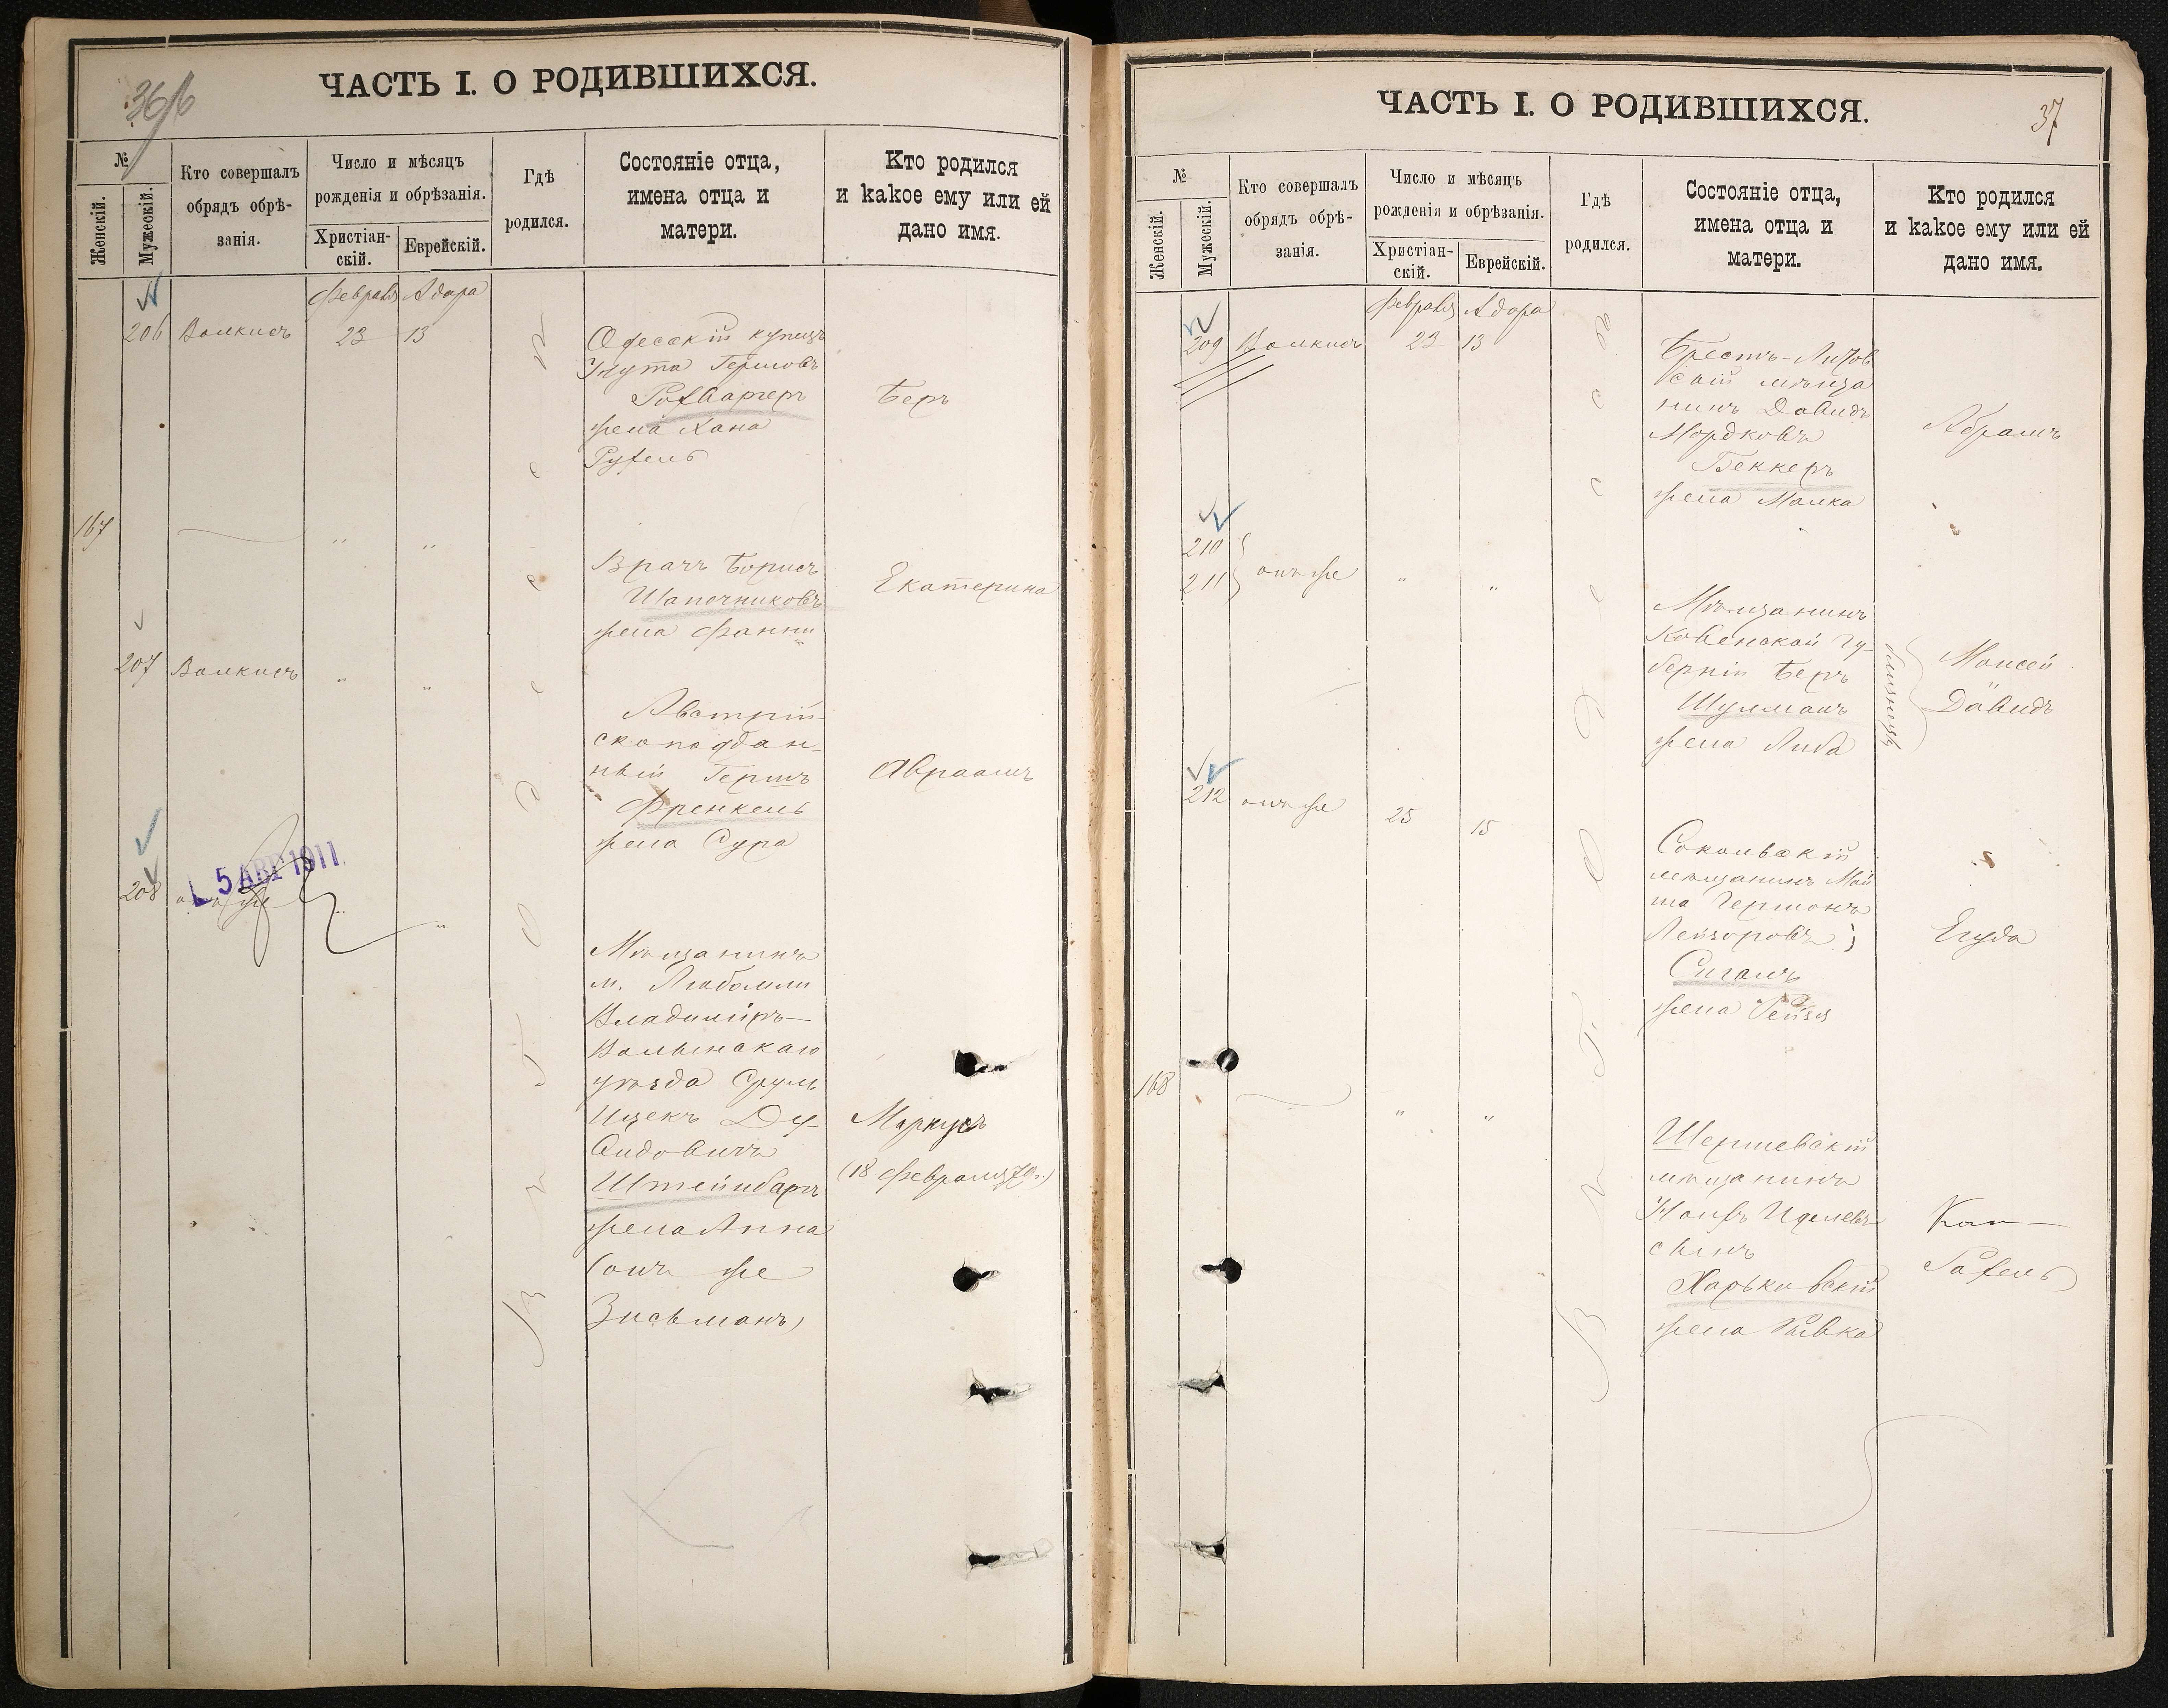 36/b
ЧАСТЬ I. О РОДИВШИХСЯ.
№
Женскій.
Мужескій.
Кто совершалъ
обрядъ обрѣ-
занія.
Число и мѣсяцъ
рожденія и обрѣзанія.
Христіан-
скій.
Еврейскій.
Гдѣ
родился.
Состояніе отца,
имена отца и
матери.
Кто родился
и какое ему или ей
дано имя.
Февраля Адара
206 Волкисъ 23 13
Одесскій купецъ
Гершовъ
Ротбаргеръ
жена Хана
Рухель
Беръ
167 " "
Врачъ Борисъ
Шапочниковъ
жена Фанни
Екатерина
207 Волкисъ " "
Австрій-
скоподдан-
ный Гершъ
Френкель
жена Сура
Авраамъ
5 АВГ 1911
208 онъ же " "
Мѣщанинъ
м. Любомли
Владимиръ-
Волынскаго
уѣзда Сруль
Ицекъ Ду-
видовичъ
Штейнбаръ
жена Анна
(онъ же
Зисьманъ)
Маркусъ
(18 февраля 70 г.)
въ Одессѣ
37
ЧАСТЬ I. О РОДИВШИХСЯ.
№
Женскій.
Мужескій.
Кто совершалъ
обрядъ обрѣ-
занія.
Число и мѣсяцъ
рожденія и обрѣзанія.
Христіан-
скій.
Еврейскій.
Гдѣ
родился.
Состояніе отца,
имена отца и
матери.
Кто родился
и какое ему или ей
дано имя.
Февраля Адара
209 Волкисъ 23 13
Брестъ-Литов
скій мѣща
нинъ Давидъ
Мордковъ
Беккеръ
жена Малка
Абрамъ
210
211 онъ же " "
Мѣщанинъ
Ковенской гу-
берніи Беръ
Шулманъ
жена Либа
близнецы
Моисей
Давидъ
212 онъ же 25 15
Сокольскій
мѣщанинъ
Гершонъ
Лейзоровъ
Сигалъ
жена Рейзя
Егуда
168 " "
Шершевскій
мѣщанинъ
сынъ
Харьковскій
жена Ривка
Рахель
въ Одессѣ